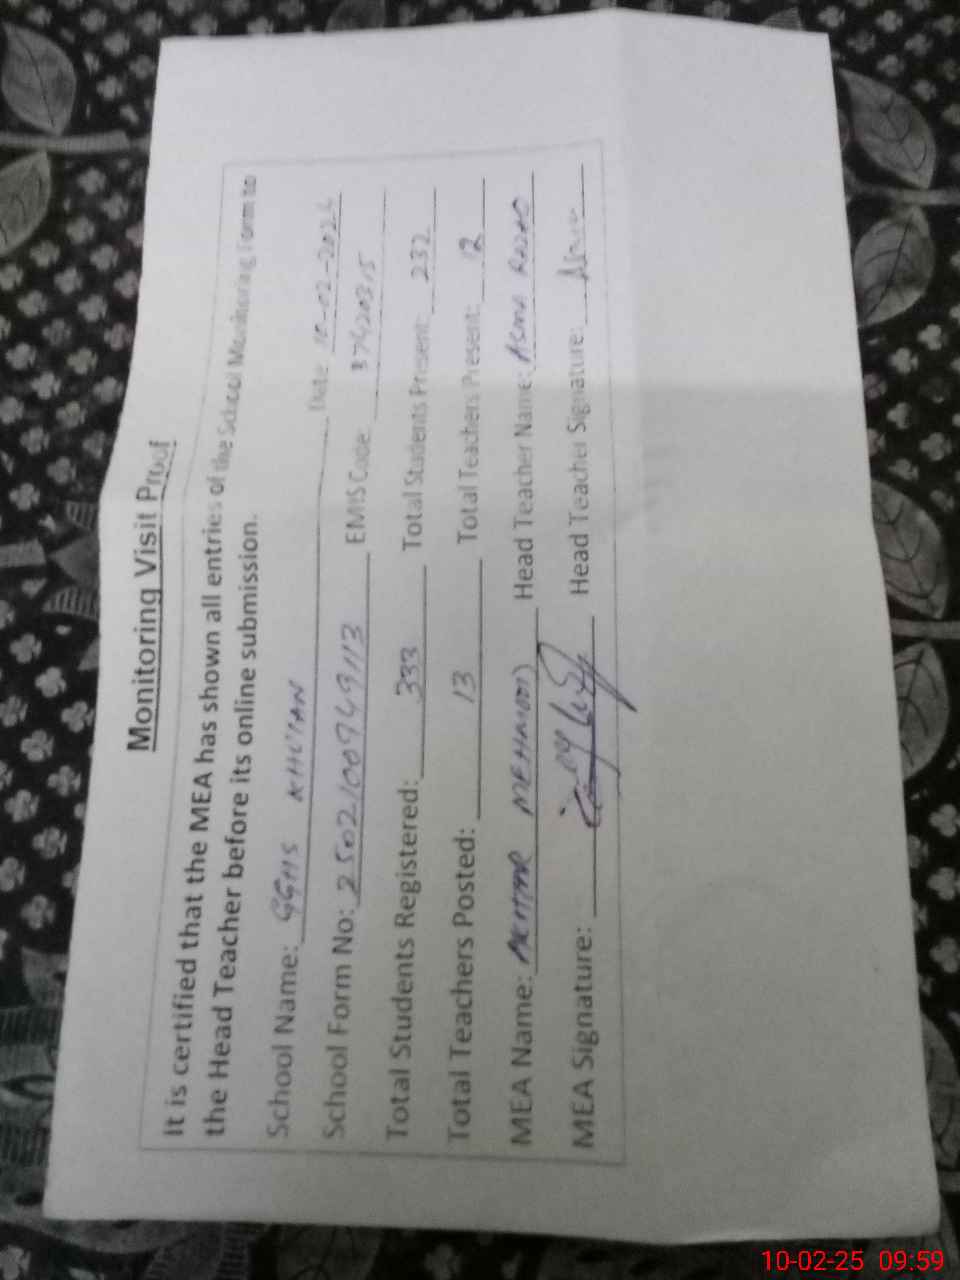 Monitoring Visit Proof
It is certified that the MEA has shown all entries of the School Monitoring Form to
the Head Teacher before its online submission.
School Name: GGHS Date: 10-02-202
School Form No: 2502100949113 EMIS Code: 37420315
Total Students Registered: 333 Total Students Present: 232
Total Teachers Posted: 13 Total Teachers Present: 12
MEA Name: AKHTAR MEHMOOD Head Teacher Name: ASMA
MEA Signature: Head Teacher Signature:
10-02-25 09:59